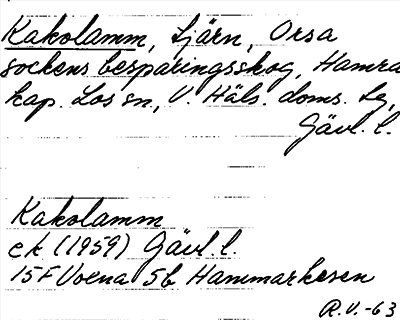 Kakolamm, tjärn, Orsa
sockens besparingsskog, Hamra
kap. Los sn, V. Häls. doms. lg,
Gävl. l.
Kakolamm
ek (1959) Gävl l.
15F Voxna 5b Hammarkesen
R.V.-63